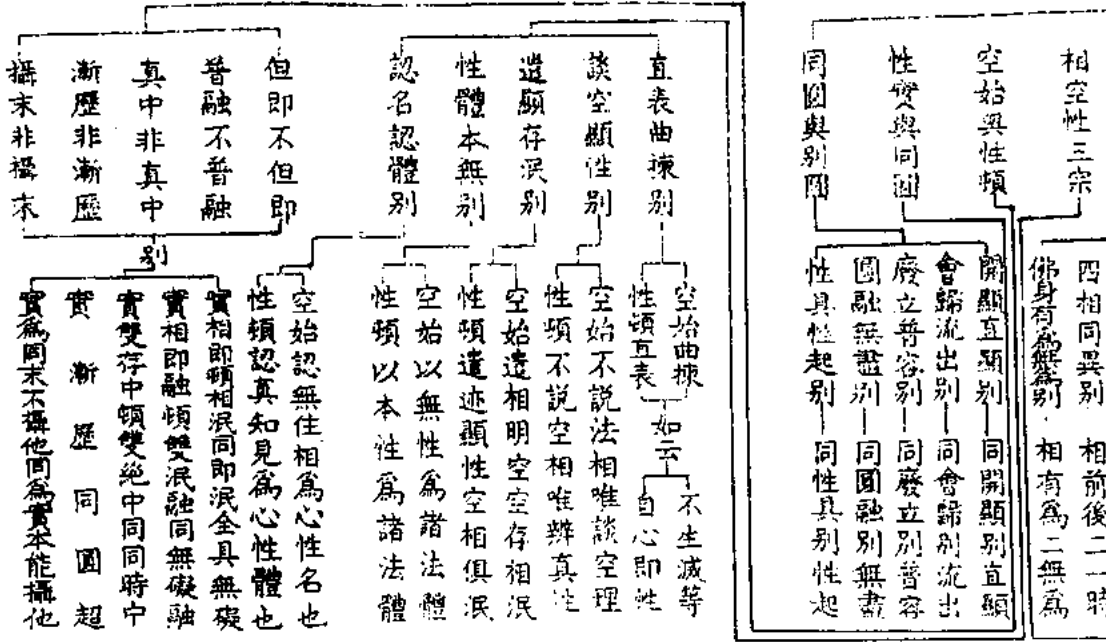 相空性三宗
空始與性頓
性實與同圓
同圓與別圓
四相同異別
相前後二一時
佛身有為無為別
相有為二無為
開顯直顯別
同開顯別直顯
會歸流出別
同會歸別流出
廢立普容別
同廢立別普容
圓融無盡別
同圓融別無盡
性具性起別
同性具別性起
直表曲揀別
談空顯性別
遣顯存泯別
性體本無別
認名認體別
空始曲揀
性頓直表
如云
不生滅等
自心即性
空始不說法相唯談空理
性頓不說空相唯辨真性
空始遣相明空空存相泯
性頓遣迹顯性空相俱泯
空始以無性為諸法體
性頓以本性為諸法體
空始認無住相為心性名也
性頓認真知見為心性體也
但即不但即
普融不普融
真中非真中
漸歷非漸歷
攝末非攝末
別
實相即頓相泯同即泯全具無礙
實相即融頓雙泯融同無礙融
實雙存中頓雙絕中同同時中
實漸歷同圓超
實為同末不攝他同為實本能攝他